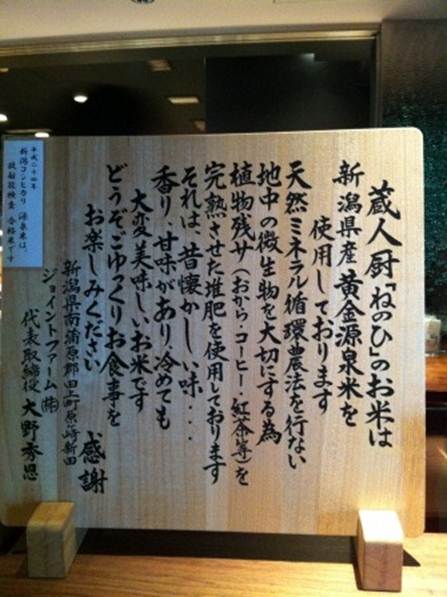 蔵人厨「ねのひ」のお米は
新潟県産黄金源泉米を
使用しております
天然ミネラル循環農法を行ない
地中の微生物を大切にする為
植物残サ(おから・コーヒー・紅茶等)を
完熟させた堆肥を使用しております
それは、昔懐かしい味・・・
香り、甘味があり冷めても
大変美味しいお米です
どうぞごゆっくりお食事を
お楽しみください
感謝
新潟県南蒲原郡田上町原ヶ崎新田
ジョイントファーム㈱
代表取締役 大野秀恩
平成二十四年
新潟コシヒカリ 源泉米は、
放射能検査 合格米です